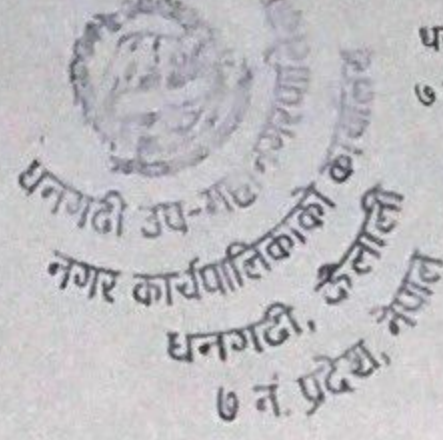 धनगढी उप-महानगरपालिका
नगर कार्यपालिकाको कार्यालय
धनगढी, कैलाली
७ नं. प्रदेश, नेपाल
७